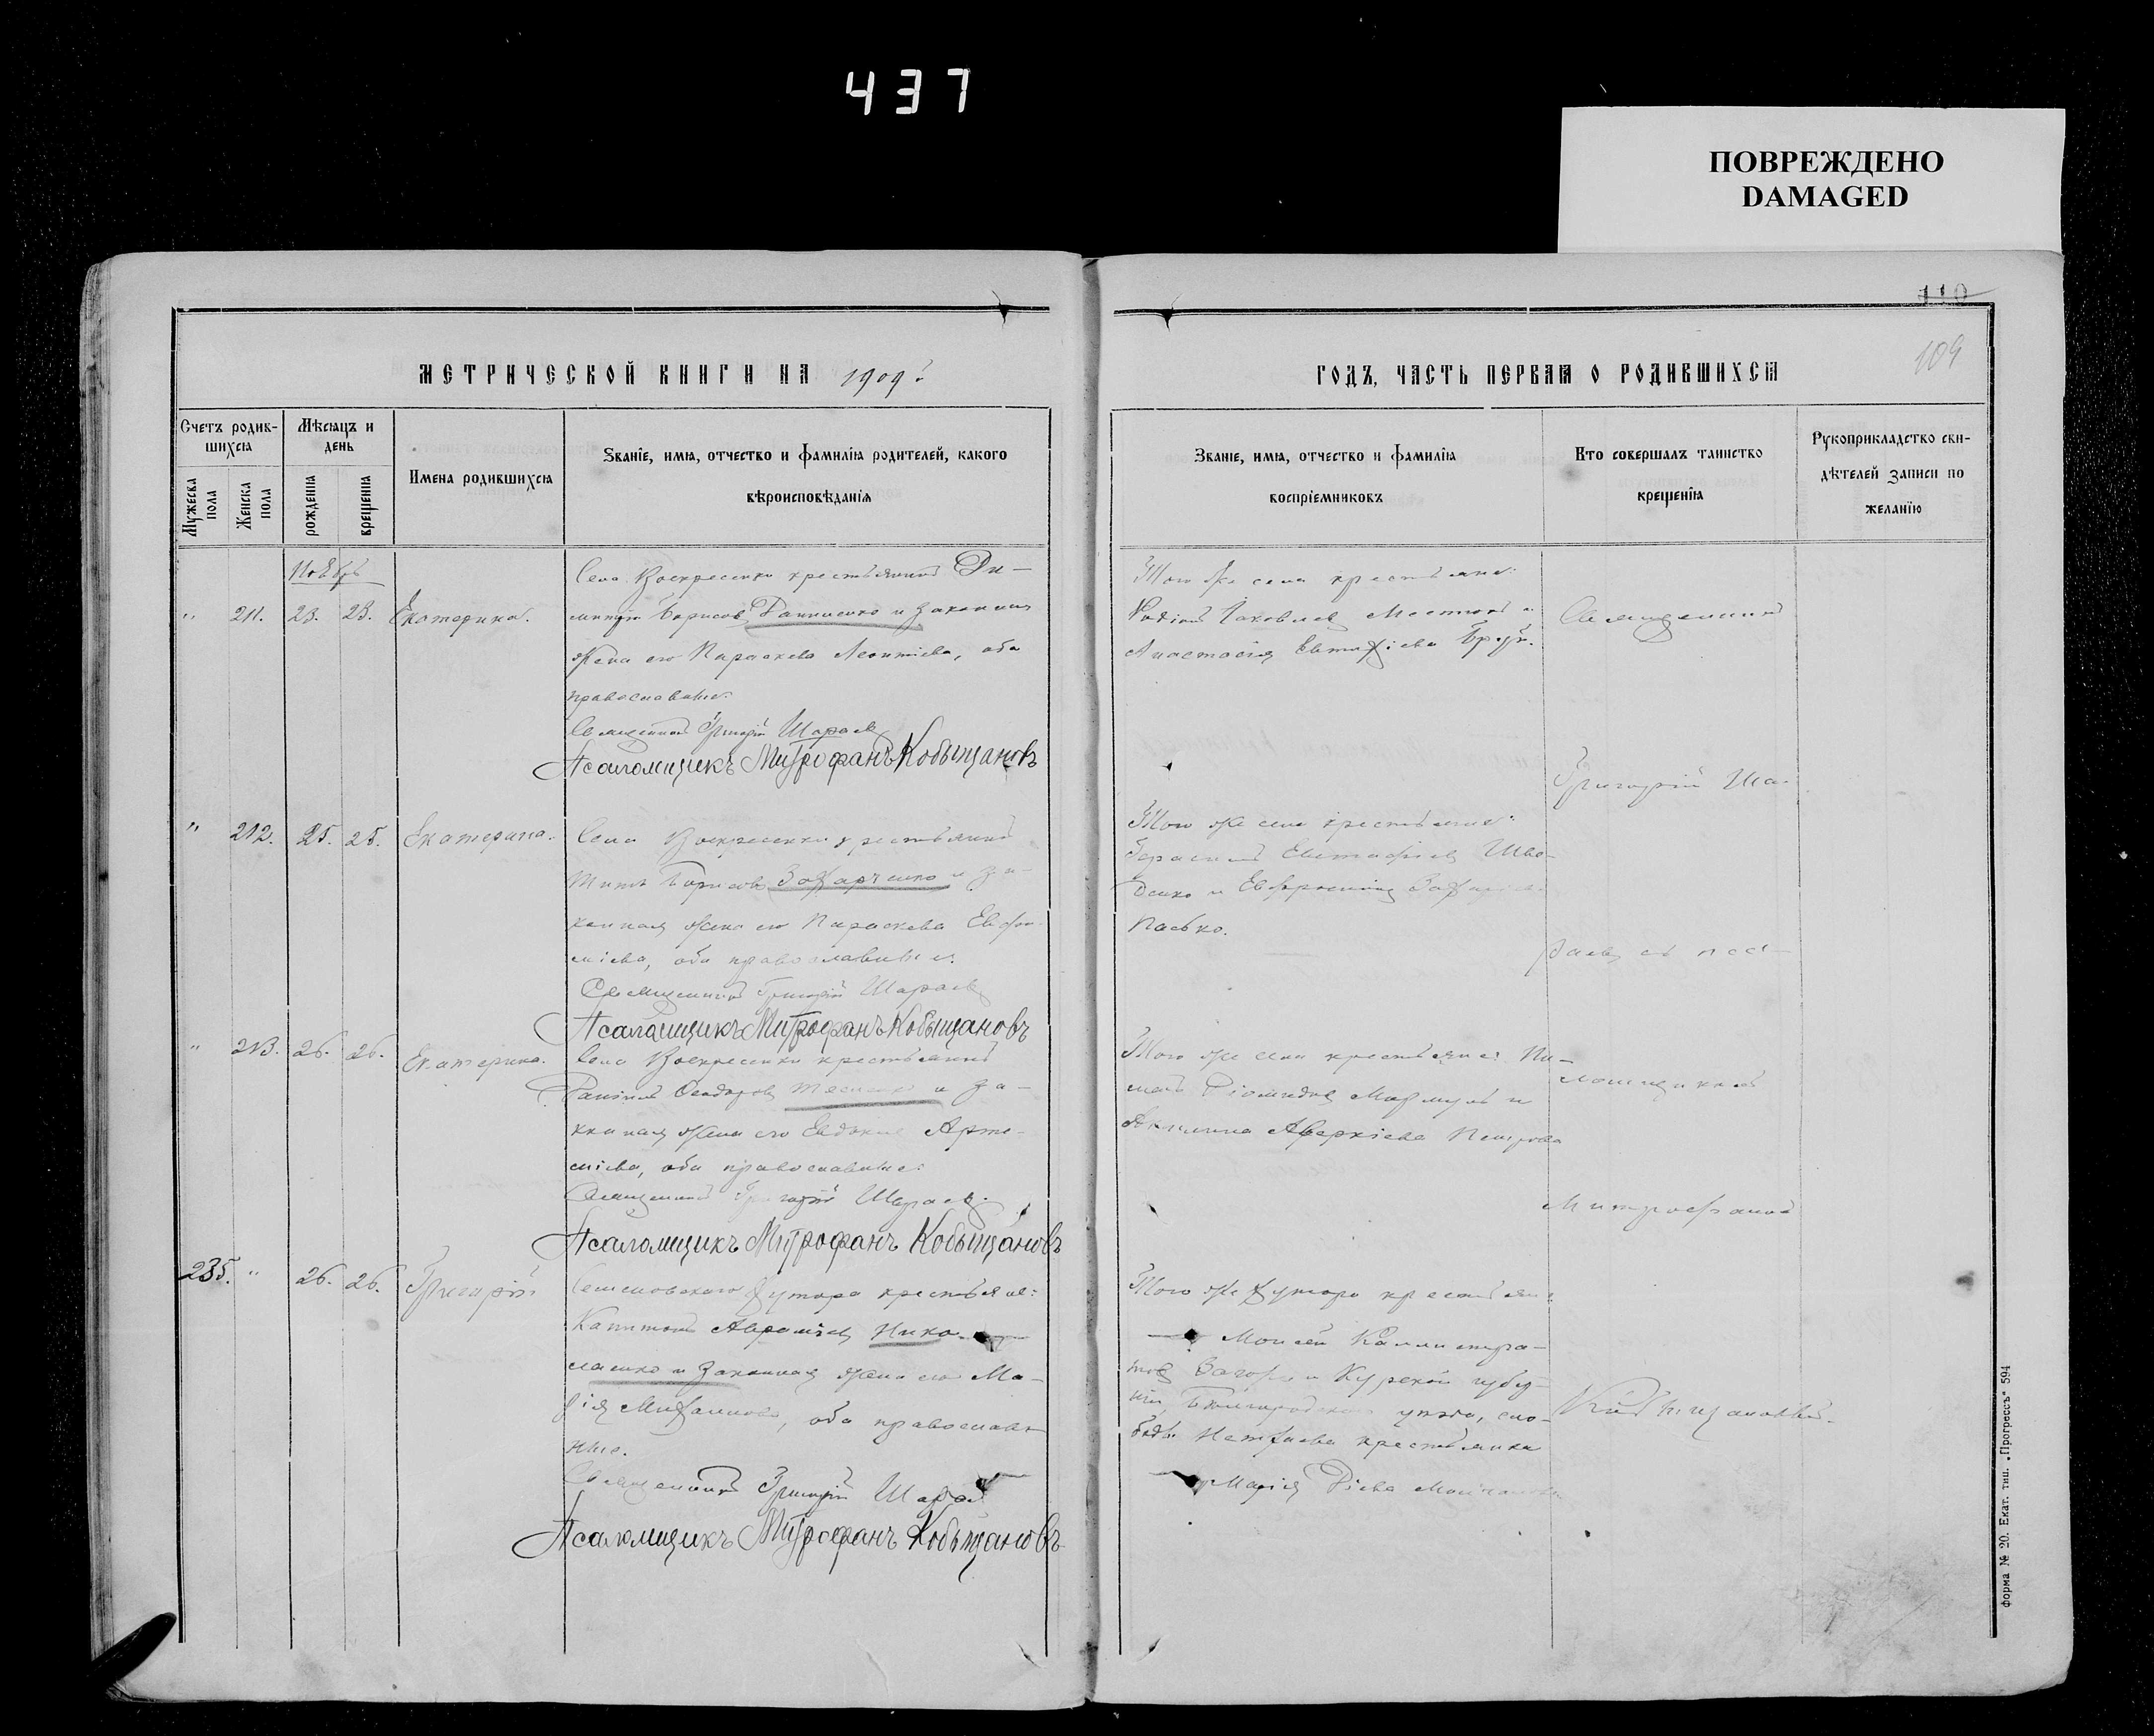 437
ПОВРЕЖДЕНО
DAMAGED
110
109
МЕТРИЧЕСКОЙ КНИГИ НА 1909 г.
ГОДЪ, ЧАСТЬ ПЕРВАЯ О РОДИВШИХСЯ
Счетъ родив-
шихся
Мужеска пола
Женска пола
Мѣсяцъ и
день
рожденія
крещенія
Имена родившихся
Званіе, имя, отчество и фамилія родителей, какого
вѣроисповѣданія
Званіе, имя, отчество и фамилія
воспріемниковъ
Кто совершалъ таинство
крещенія
Рукоприкладство сви-
дѣтелей записи по
желанію
Ноябрь
" 211. 23. 23. Екатерина.
Села Воскресенки крестьянинъ Ди-
митрій Борисовъ Данненко и законная
жена его Параскева Леонтіева, оба
православные.
Священникъ Григорій Шараевъ
Псаломщикъ Митрофанъ Кобыщановъ
Того же села крестьяне:
Іаковлевъ
Анастасія Евтихіева
Священникъ
Григорій Ша-
раевъ съ пса-
ломщикомъ
Митрофаномъ
Кобыщановымъ.
" 212. 25. 25. Екатерина.
Села Воскресенки крестьянинъ
Титъ Борисовъ Захарченко и за-
конная жена его Параскева Евфи-
міева, оба православные.
Священникъ Григорій Шараевъ
Псаломщикъ Митрофанъ Кобыщановъ
Того же села крестьяне:
Герасимъ Евстафіевъ Шве-
денко и Евфросинія
Пасько.
" 213. 26. 26. Екатерина.
Села Воскресенки крестьянинъ
Даніилъ Феодоровъ и за-
конная жена его Евдокия Арте-
міева, оба православные.
Священникъ Григорій Шараевъ
Псаломщикъ Митрофанъ Кобыщановъ
Того же села крестьяне:
Діомидовъ и
Акилина Аверкіева Петрова
235. " 26. 26. Григорій
хутора крестьяне:
Капитонъ Авраміевъ Нико-
лаенко и законная жена его Ма-
рія, оба православ-
ные.
Священникъ Григорій Шараевъ
Псаломщикъ Митрофанъ Кобыщановъ
Того же хутора крестьянинъ
Моисей Каллистра-
товъ и Курской губер-
ніи, Бѣлгородскаго уѣзда, сло-
боды крестьянка
Марія
Форма № 20. Екат. тип. „Прогрессъ“ 594